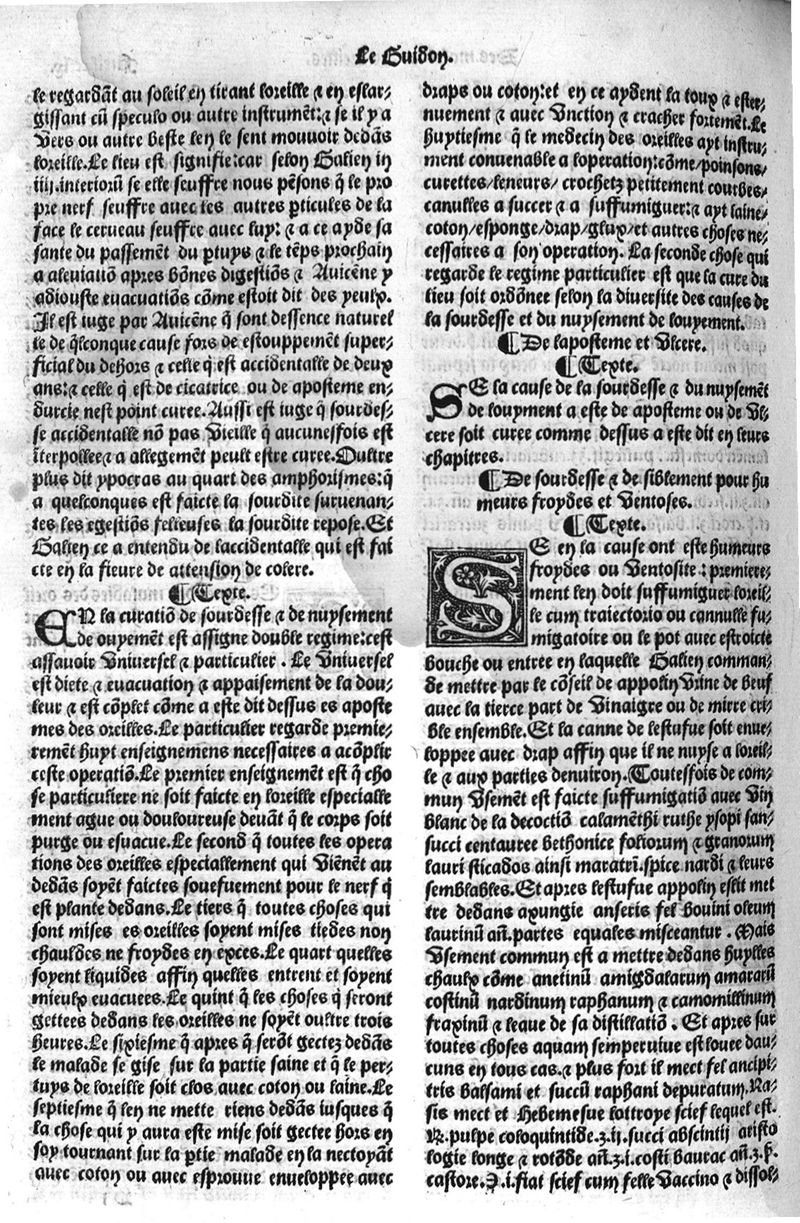 Le Guidon.
le regardāt au soleil en tirant loreille ⁊ en eslar⸗
gissant cū speculo ou autre instrumēt:⁊ se il y a
Vers ou autre beste len le sent mouuoir dedās
loreille.Le lieu est signifie:car selon Galien in
iiij.interiorū se elle seuffre nous pēsons q̄ le pro
pre nerf seuffre auec les autres ꝑticules de la
face le cerueau seuffre auec luy: ⁊ a ce ayde sa
sante du passemēt du ꝑtuys ⁊ le tēps prochain
a aleuiatiō apres bōnes digestiōs ⁊ Auicēne y
adiouste euacuatiōs cōme estoit dit des yeulx.
Il est iuge par Auicēne q̄ sont dessence naturel
le de q̄lconque cause fors de estouppemēt super⸗
ficial du dehors ⁊ celle q̄ est accidentalle de deux
ans:⁊ celle q̄ est de cicatrice ou de aposteme en⸗
durcie nest point curee.Aussi est iuge q̄ sourdes⸗
se accidentalle nō pas Vieille q̄ aucunesfois est
īterpollee⁊ a allegemēt peult estre curee.Oultre
plus dit ypocras au quart des amphorismes:q̄
a quelconques est faicte la sourdite suruenan⸗
tes les egestiōs felieuses la sourdite repose.Et
Galien ce a entendu de laccidentalle qui est fai
cte en la fieure de attension de colere.
¶Texte.
EN la curatiō de sourdesse ⁊ de nuysement
de ouyemēt est assigne double regime:cest
assauoir Vniuersel ⁊ particulier . Le Vniuersel
est diete ⁊ euacuation ⁊ appaisement de la dou⸗
leur ⁊ est cōplet cōme a este dit dessus es aposte
mes des oreilles.Le particulier regarde premie⸗
remēt huyt enseignemens necessaires a acōplir
ceste operatiō.Le premier enseignemēt est q̄ cho
se particuliere ne soit faicte en loreille especialle
ment ague ou douloureuse deuāt q̄ le corps soit
purge ou esuacue.Le second q̄ toutes les opera
tions des oreilles especiallement qui Viēnēt au
dedās soyēt faictes souefuement pour le nerf q̄
est plante dedans.Le tiers q̄ toutes choses qui
sont mises es oreilles soyent mises tiedes non
chauldes ne froydes en exces.Le quart quelles
soyent liquides affin quelles entrent et soyent
mieulx euacuees.Le quint q̄ les choses q̄ seront
gettees dedans les oreilles ne soyēt oultre trois
heures.Le sixiesme q̄ apres q̄ serōt gectez dedās
le malade se gise sur la partie saine et q̄ le per⸗
tuys de loreille soit clos auec coton ou laine.Le
septiesme q̄ len ne mette riens dedās iusques q̄
la chose qui y aura este mise soit gectee hors en
soy tournant sur la ꝑtie malade en la nectoyāt
auec coton ou auec esprouue enueloppee auec
draps ou coton:et en ce aydent la toux ⁊ ester⸗
nuement ⁊ auec Vnction ⁊ cracher fortemēt.Le
huytiesme q̄ le medecin des oreilles ayt instru⸗
ment conuenable a loperation:cōme/poinsons/
curettes/leneurs/ crochetz petitement courbes/
canulles a succer ⁊ a suffumiguer:⁊ ayt laine⸗
coton/esponge/drap/glux/et autres choses ne⸗
cessaires a son operation. La seconde chose qui
regarde le regime particulier est que la cure du
lieu soit ordōnee selon la diuersite des causes de
la sourdesse et du nuysement de louyement.
¶De laposteme et Vlcere.
¶Texte.
SE la cause de la sourdesse ⁊ du nuysemēt
de louyment a este de aposteme ou de Vl⸗
cere soit curee comme dessus a este dit en leurs
chapitres.
¶De sourdesse ⁊ de siblement pour hu
meurs froydes et Ventoses.
¶Texte.
SE en la cause ont este humeurs
froydes ou Ventosite : premiere⸗
ment len doit suffumiguer loreil⸗
le cum traiectorio ou cannulle fu⸗
migatoire ou le pot auec estroicte
bouche ou entree en laquelle Galien comman⸗
de mettre par le cōseil de appolin Vrine de beuf
auec la tierce part de Vinaigre ou de mirre cri⸗
ble ensemble.Et la canne de lestufue soit enue⸗
loppee auec drap affin que il ne nuyse a loreil⸗
le ⁊ aux parties denuiron.Toutesfois de com⸗
mun Vsemēt est faicte suffumigatiō auec Vin
blanc de la decoctiō calamēthi ruthe ysopi san⸗
succi centauree bethonice foliorum ⁊ granorum
lauri sticados ainsi maratrī.spice nardi ⁊ leurs
semblables.Et apres lestufue appolin eslit met
tre dedans axungie anseris fel bouini oleum
laurinū añ.partes equales misceantur . Mais
Vsement commun est a mettre dedans huylles
chaulx cōme anetinū amigdalarum amararū
costinū nardinum raphanum ⁊ camomillinum
fraxinū ⁊ leaue de sa distillatiō . Et apres sur
toutes choses aquam semperuiue est louee dau⸗
cuns en tous cas.⁊ plus fort il mect fel ancipi⸗
tris balsami et succū raphani depuratum.Ra⸗
sis mect et Hebemesue lottroye scief lequel est.
℞.pulpe coloquintide.ʒ.ij.succi abscintij aristo
logie longe ⁊ rotōde añ.ʒ.i.costi baurac añ.ʒ.ſ.
castore.ʒ.i.fiat scief cum felle Vaccino ⁊ dissol⸗